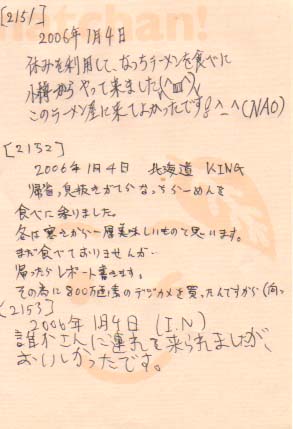 [2151]
2006年1月4日
休みを利用して、なっちラーメンを食べに
小樽からやって来ました(^ω^)
このラーメン屋に来てよかったです!^_^(NAO)
[2152]
2006年1月4日 北海道 KING
帰省、息抜きがてらなっちらーめんを
食べに参りました。
冬は寒さから一層美味しいものと思います。
まだ食べておりませんが
帰ったらレポート書きます。
その為に800万画素のデジカメを買ったんですから(向っ
[2153]
2006年1月4日 (I.N)
誰かさんに連れて来られましたが、
おいしかったです。